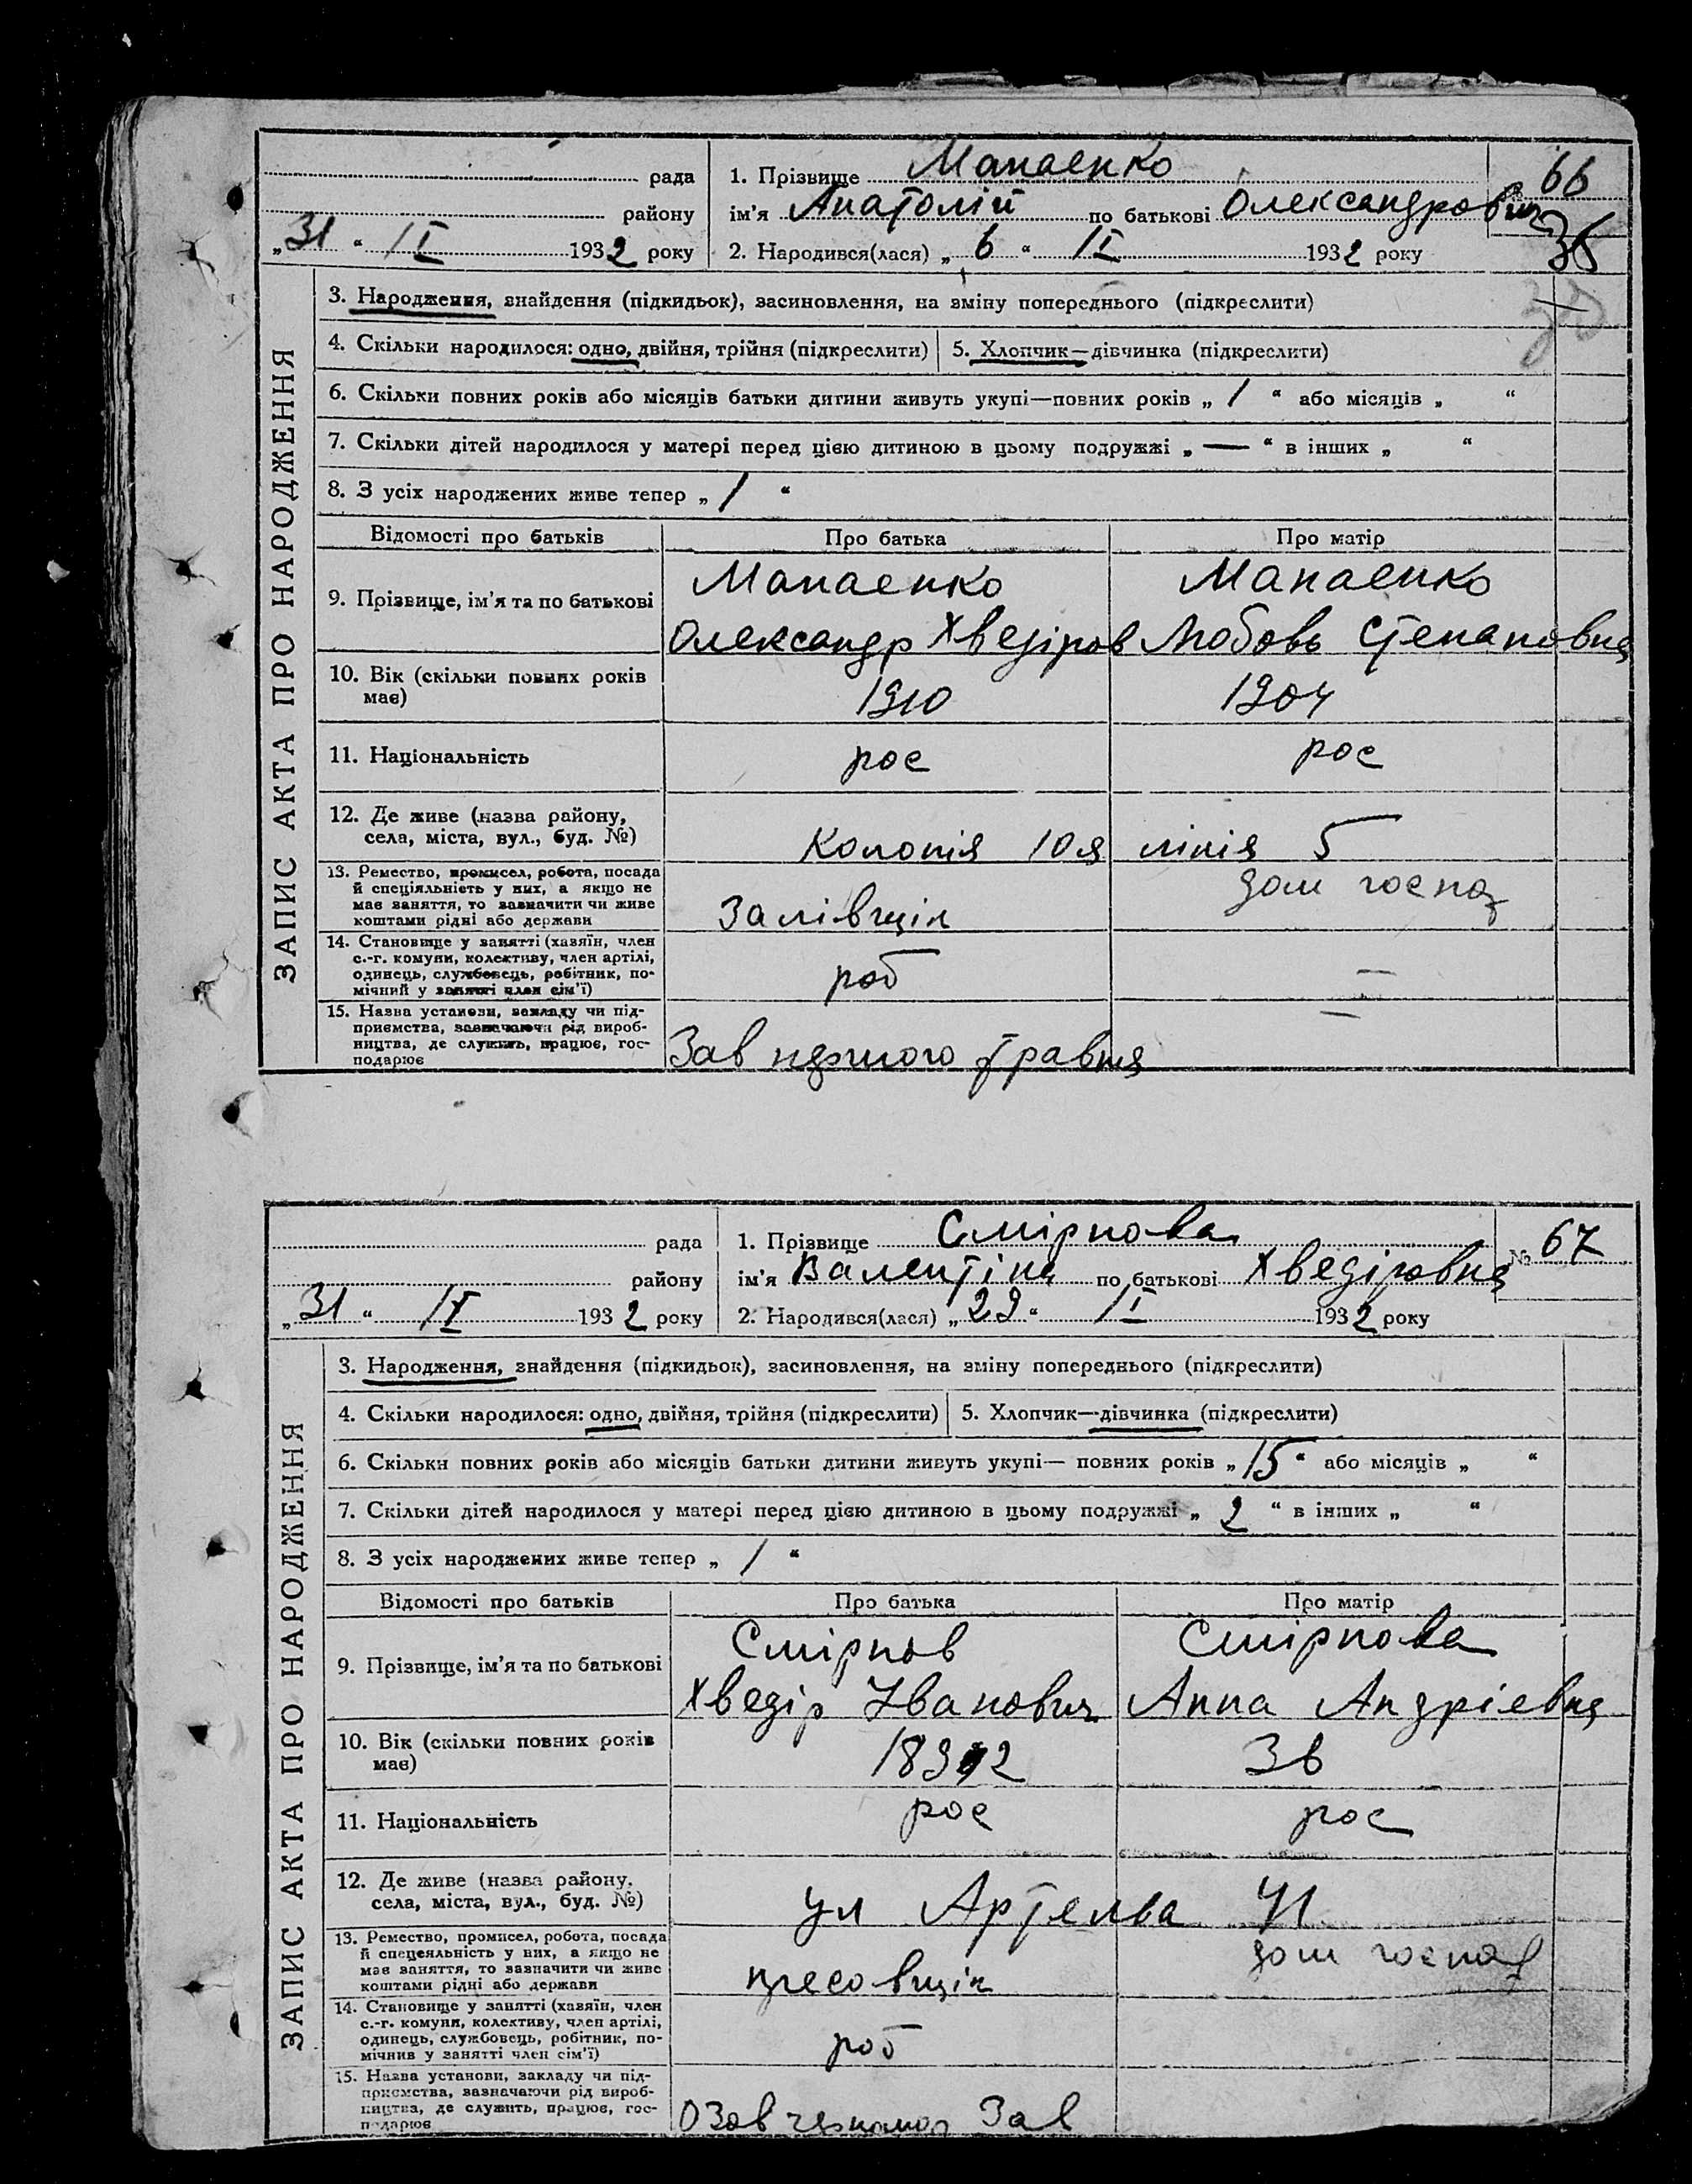 рада
району
„31“ II 1932 року
1. Прізвище Манаенко
ім'я Анатолій по батькові Олександрович
2. Народився(лася) „6“ II 1932 року
№ 66
35
ЗАПИС АКТА ПРО НАРОДЖЕННЯ
3. Народження, знайдення (підкидьок), засиновлення, на зміну попереднього (підкреслити)
4. Скільки народилося: одно, двійня, трійня (підкреслити)
5. Хлопчик—дівчинка (підкреслити)
6. Скільки повних років або місяців батьки дитини живуть укупі—повних років „1“ або місяців „ “
7. Скільки дітей народилося у матері перед цією дитиною в цьому подружжі „—“ в інших „ “
8. З усіх народжених живе тепер „1“
Відомості про батьків
Про батька
Про матір
9. Прізвище, ім'я та по батькові
Манаенко
Олександр Хведіров
Манаенко
Любовь Степановна
10. Вік (скільки повних років
має)
1910
1904
11. Національність
рос
рос
12. Де живе (назва району,
села, міста, вул., буд. №)
Колонія 10я лінія 5
13. Ремество, промисел, робота, посада
й спеціяльність у них, а якщо не
має заняття, то зазначити чи живе
коштами рідні або держави
Залівщік
дом господ
14. Становище у занятті (хазяїн, член
с.-г. комуни, колективу, член артілі,
одинець, службовець, робітник, по-
мічний у занятті член сім'ї)
роб
—
15. Назва установи, закладу чи під-
приємства, зазначаючи рід вироб-
ництва, де служить, працює, гос-
подарює
Зав першого травня
—
рада
району
„31“ II 1932 року
1. Прізвище Смірнова
ім'я Валентіна по батькові Хведіровна
2. Народився(лася) „29“ II 1932 року
№ 67
ЗАПИС АКТА ПРО НАРОДЖЕННЯ
3. Народження, знайдення (підкидьок), засиновлення, на зміну попереднього (підкреслити)
4. Скільки народилося: одно, двійня, трійня (підкреслити)
5. Хлопчик—дівчинка (підкреслити)
6. Скільки повних років або місяців батьки дитини живуть укупі— повних років „15“ або місяців „ “
7. Скільки дітей народилося у матері перед цією дитиною в цьому подружжі „2“ в інших „ “
8. З усіх народжених живе тепер „1“
Відомості про батьків
Про батька
Про матір
9. Прізвище, ім'я та по батькові
Смірнов
Хведір Іванович
Смірнова
Анна Андріевна
10. Вік (скільки повних років
має)
1892
36
11. Національність
рос
рос
12. Де живе (назва району,
села, міста, вул., буд. №)
ул Артема 41
13. Ремество, промисел, робота, посада
й спецеяльність у них, а якщо не
має заняття, то зазначити чи живе
коштами рідні або держави
пресовщік
дом господ
14. Становище у занятті (хазяїн, член
с.-г. комуни, колективу, член артілі,
одинець, службовець, робітник, по-
мічнив у занятті член сім'ї)
роб
15. Назва установи, закладу чи під-
приємства, зазначаючи рід вироб-
ництва, де служить, працює, гос-
подарює
Зав